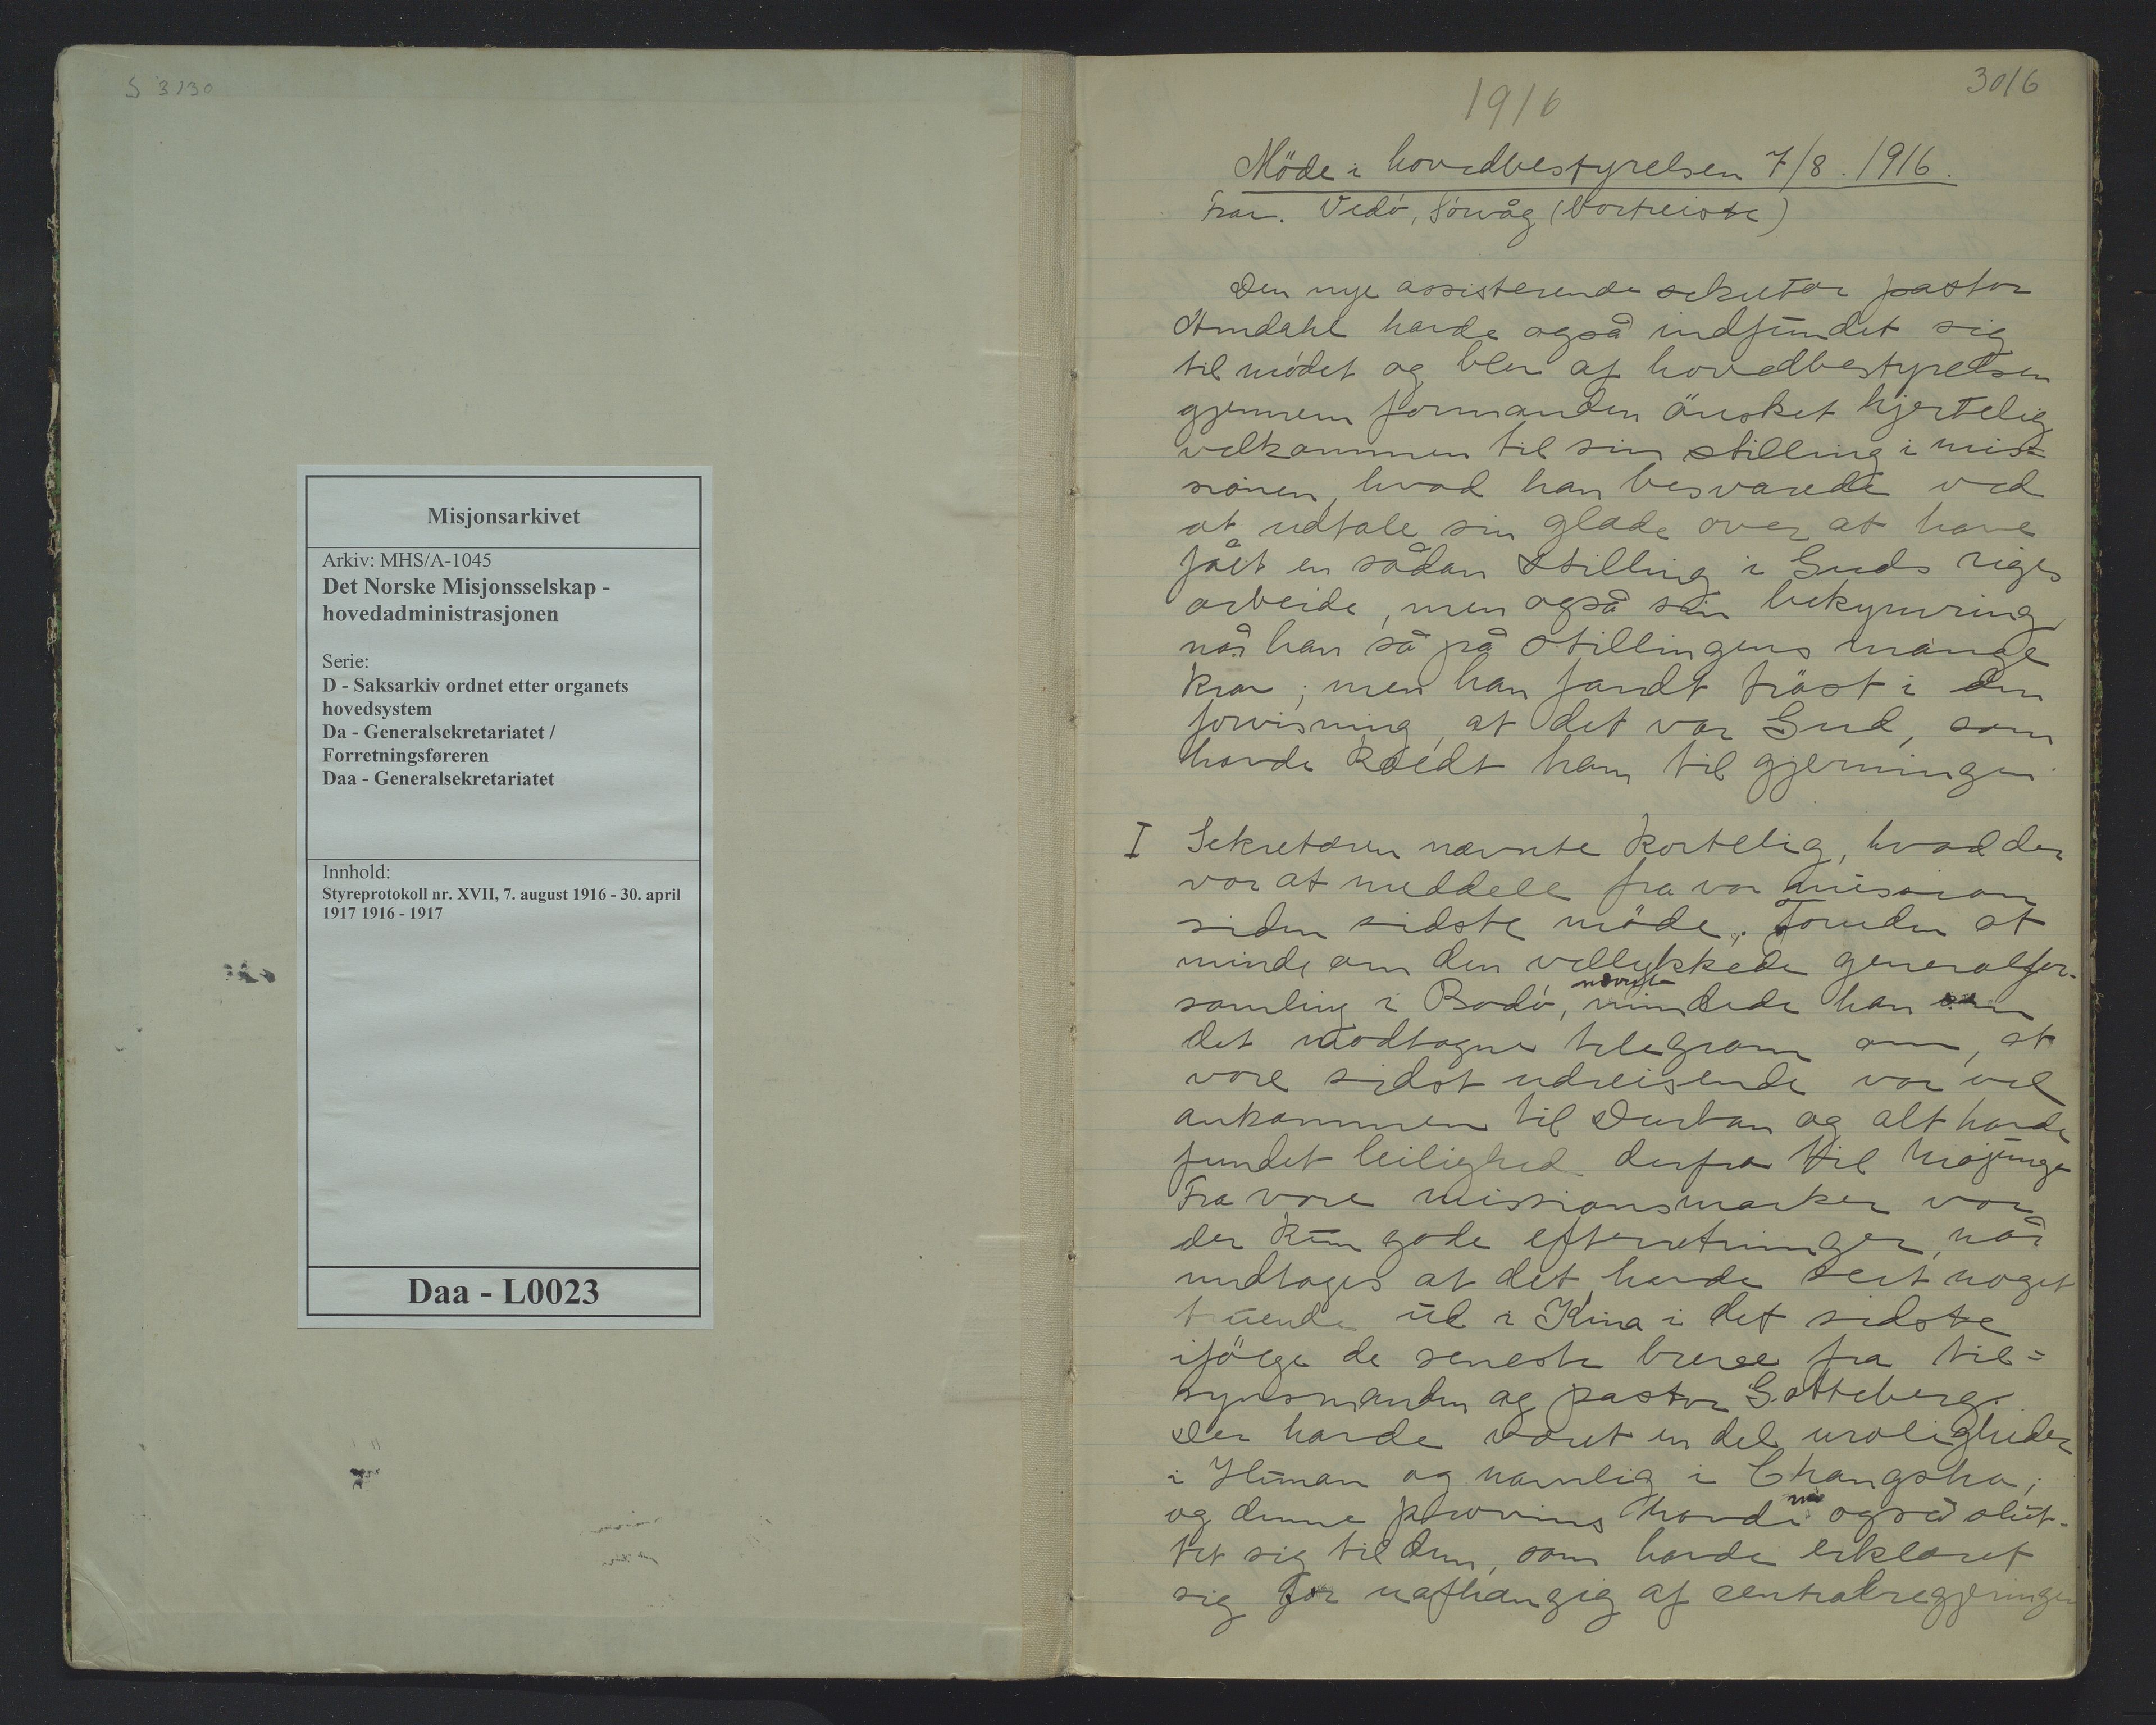 S 3130
Misjonsarkivet
Arkiv: MHS/A-1045
Det Norske Misjonsselskap -
hovedadministrasjonen
Serie:
D - Saksarkiv ordnet etter organets
hovedsystem
Da - Generalsekretariatet /
Forretningsføreren
Daa - Generalsekretariatet
Innhold:
Styreprotokoll nr. XVII, 7. august 1916 - 30. april
1917 1916 - 1917
Daa - L0023
3016
1916
Möde i hovedbestyrelsen 7/8. 1916.
Frav. Vedö, Sörvåg (bortreiste)
Den nye assisterende sekretær pastor
Amdahl havde også indfundet sig
til mödet og blev af hovedbestyrelsen
gjennem formanden önsket hjertelig
velkommen til sin stilling i mis=
sionen, hvad han besvarede ved
at udtale sin glæde over at have
fået en sådan stilling i Guds riges
arbeide, men også sin bekymring
når han så på stillingens mange
krav; men han fandt tröst i den
forvisning, at det var Gud, som
havde kaldt ham til gjerningen
I Sekretæren nævnte kortelig, hvad der
var at meddele fra vor mission
siden sidste möde. Foruden at
minde om den vellykkede generalfor-
samling i Bodö, nævnte mindede han om
det modtagne telegram om, at
vore sidst udreisende var vel
ankommen til Durban og alt havde
fundet leilighed derfra til Majunga
Fra vore missionsmarker var
der kun gode efterretninger, når
undtages at det havde seet noget
truende ud i Kina i det sidste
ifölge de seneste breve fra til=
synsmanden og pastor Gotteberg.
Der havde været en del uroligheder
i Hunan og navnlig i Changsha;
og denne provins havde nu også slut-
tet sig til dem, som havde erklæret
sig for uafhængig af centralregjeringen